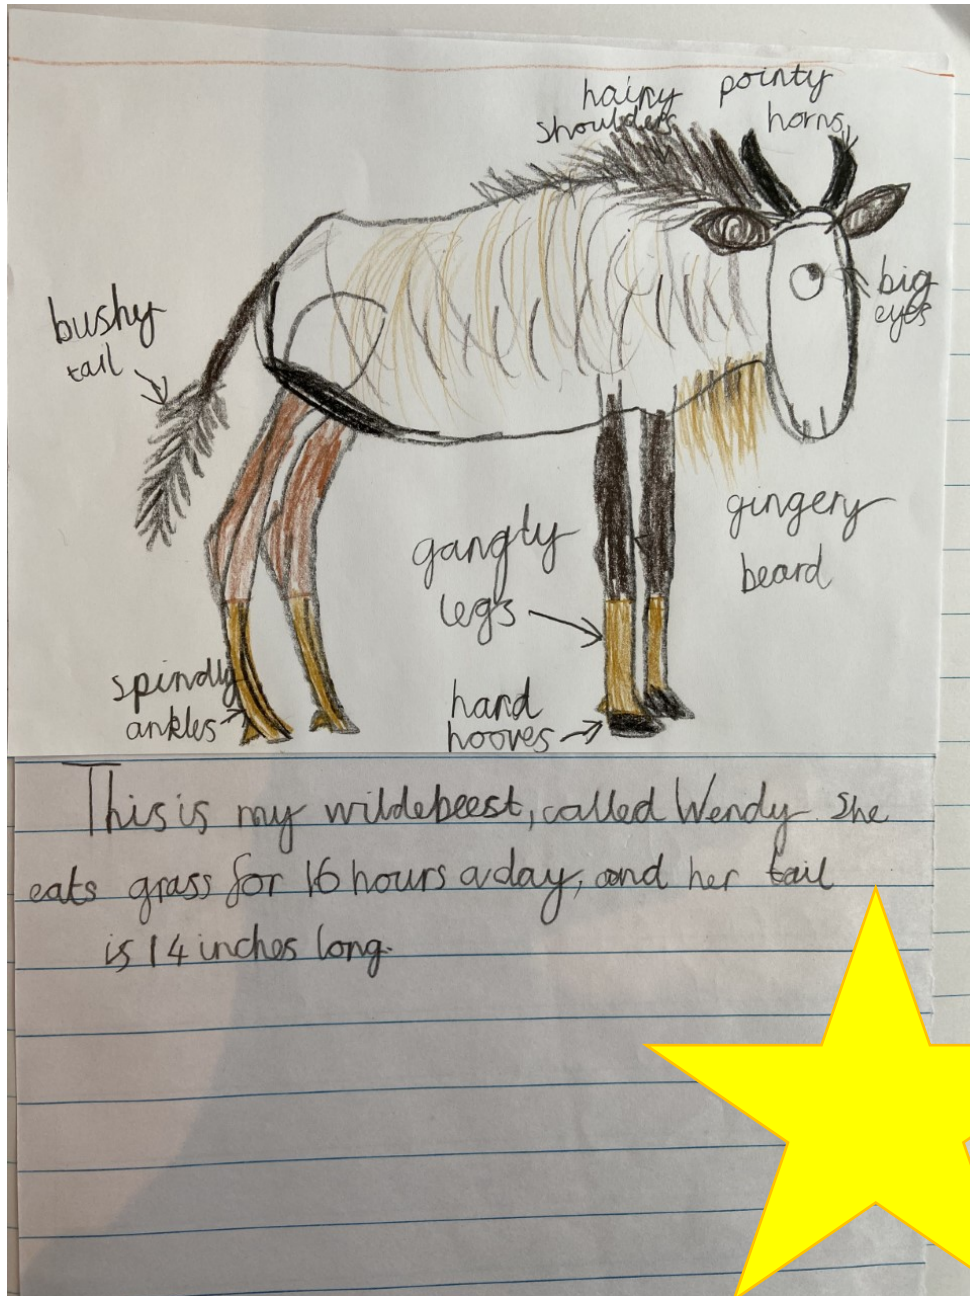 hairy
shoulders
pointy
horns
big
eyes
bushy
tail
gingery
beard
gangly
legs
spindly
ankles
hard
hooves
This is my wildebeest, called Wendy. She
eats grass for 16 hours a day, and her tail
is 14 inches long.